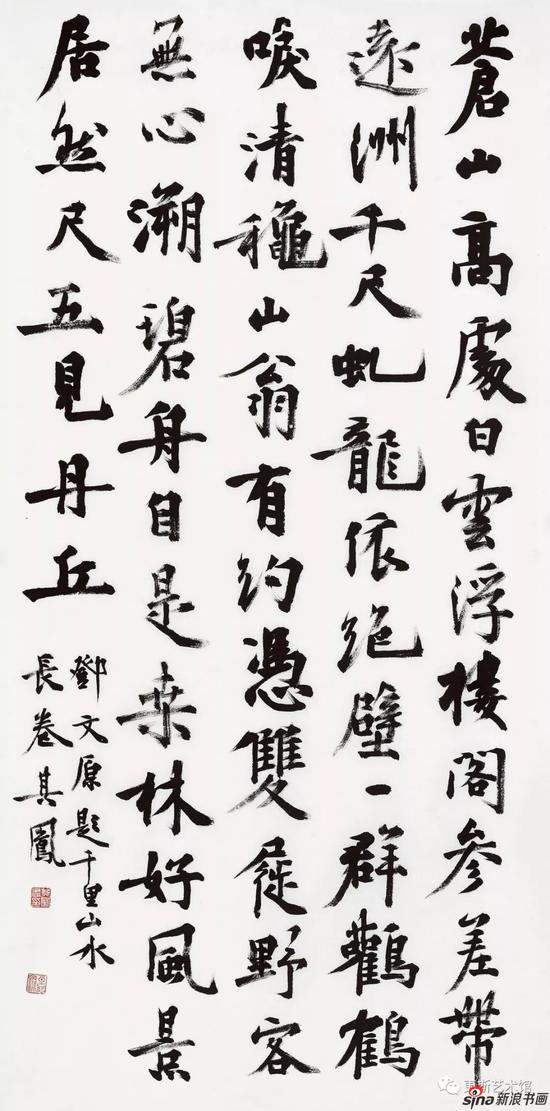 蒼山高處白雲浮樓閣參差帶
遠洲千尺虬龍依絶壁一群鸛鶴
唳清穐山翁有約憑雙屐野客
無心溯碧舟自是桒林好風景
居然尺五見丹丘
鄧文原題千里山水
長卷其鳳
更斯艺术馆
sina新浪书画